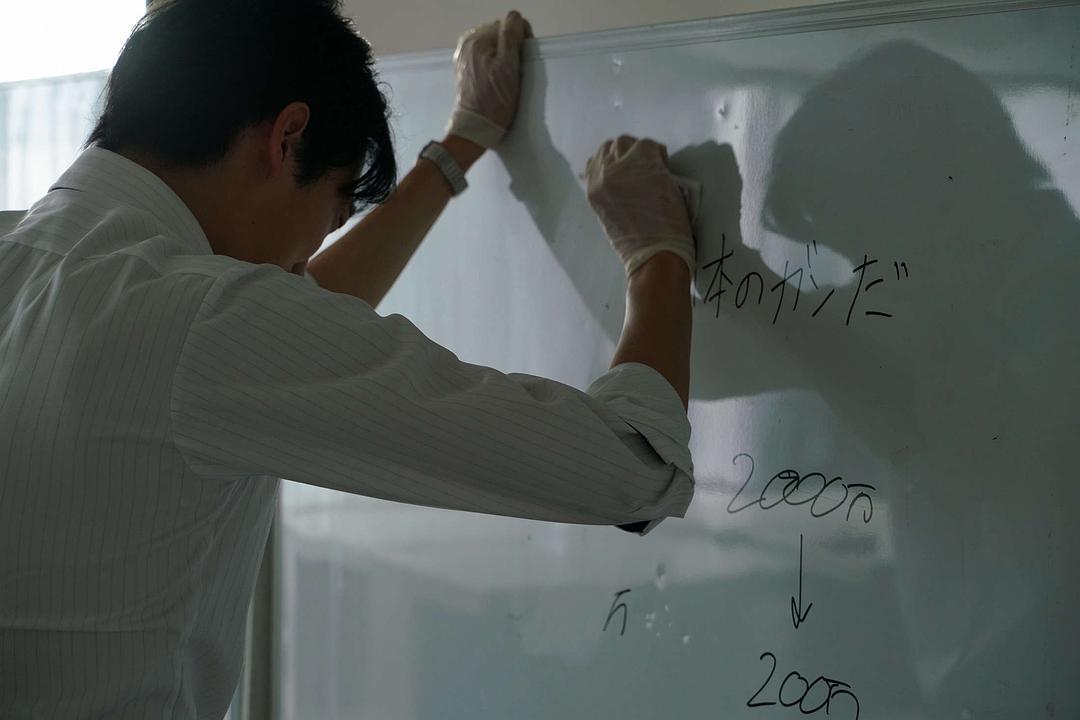 本のガンだ
2000万
万
200万